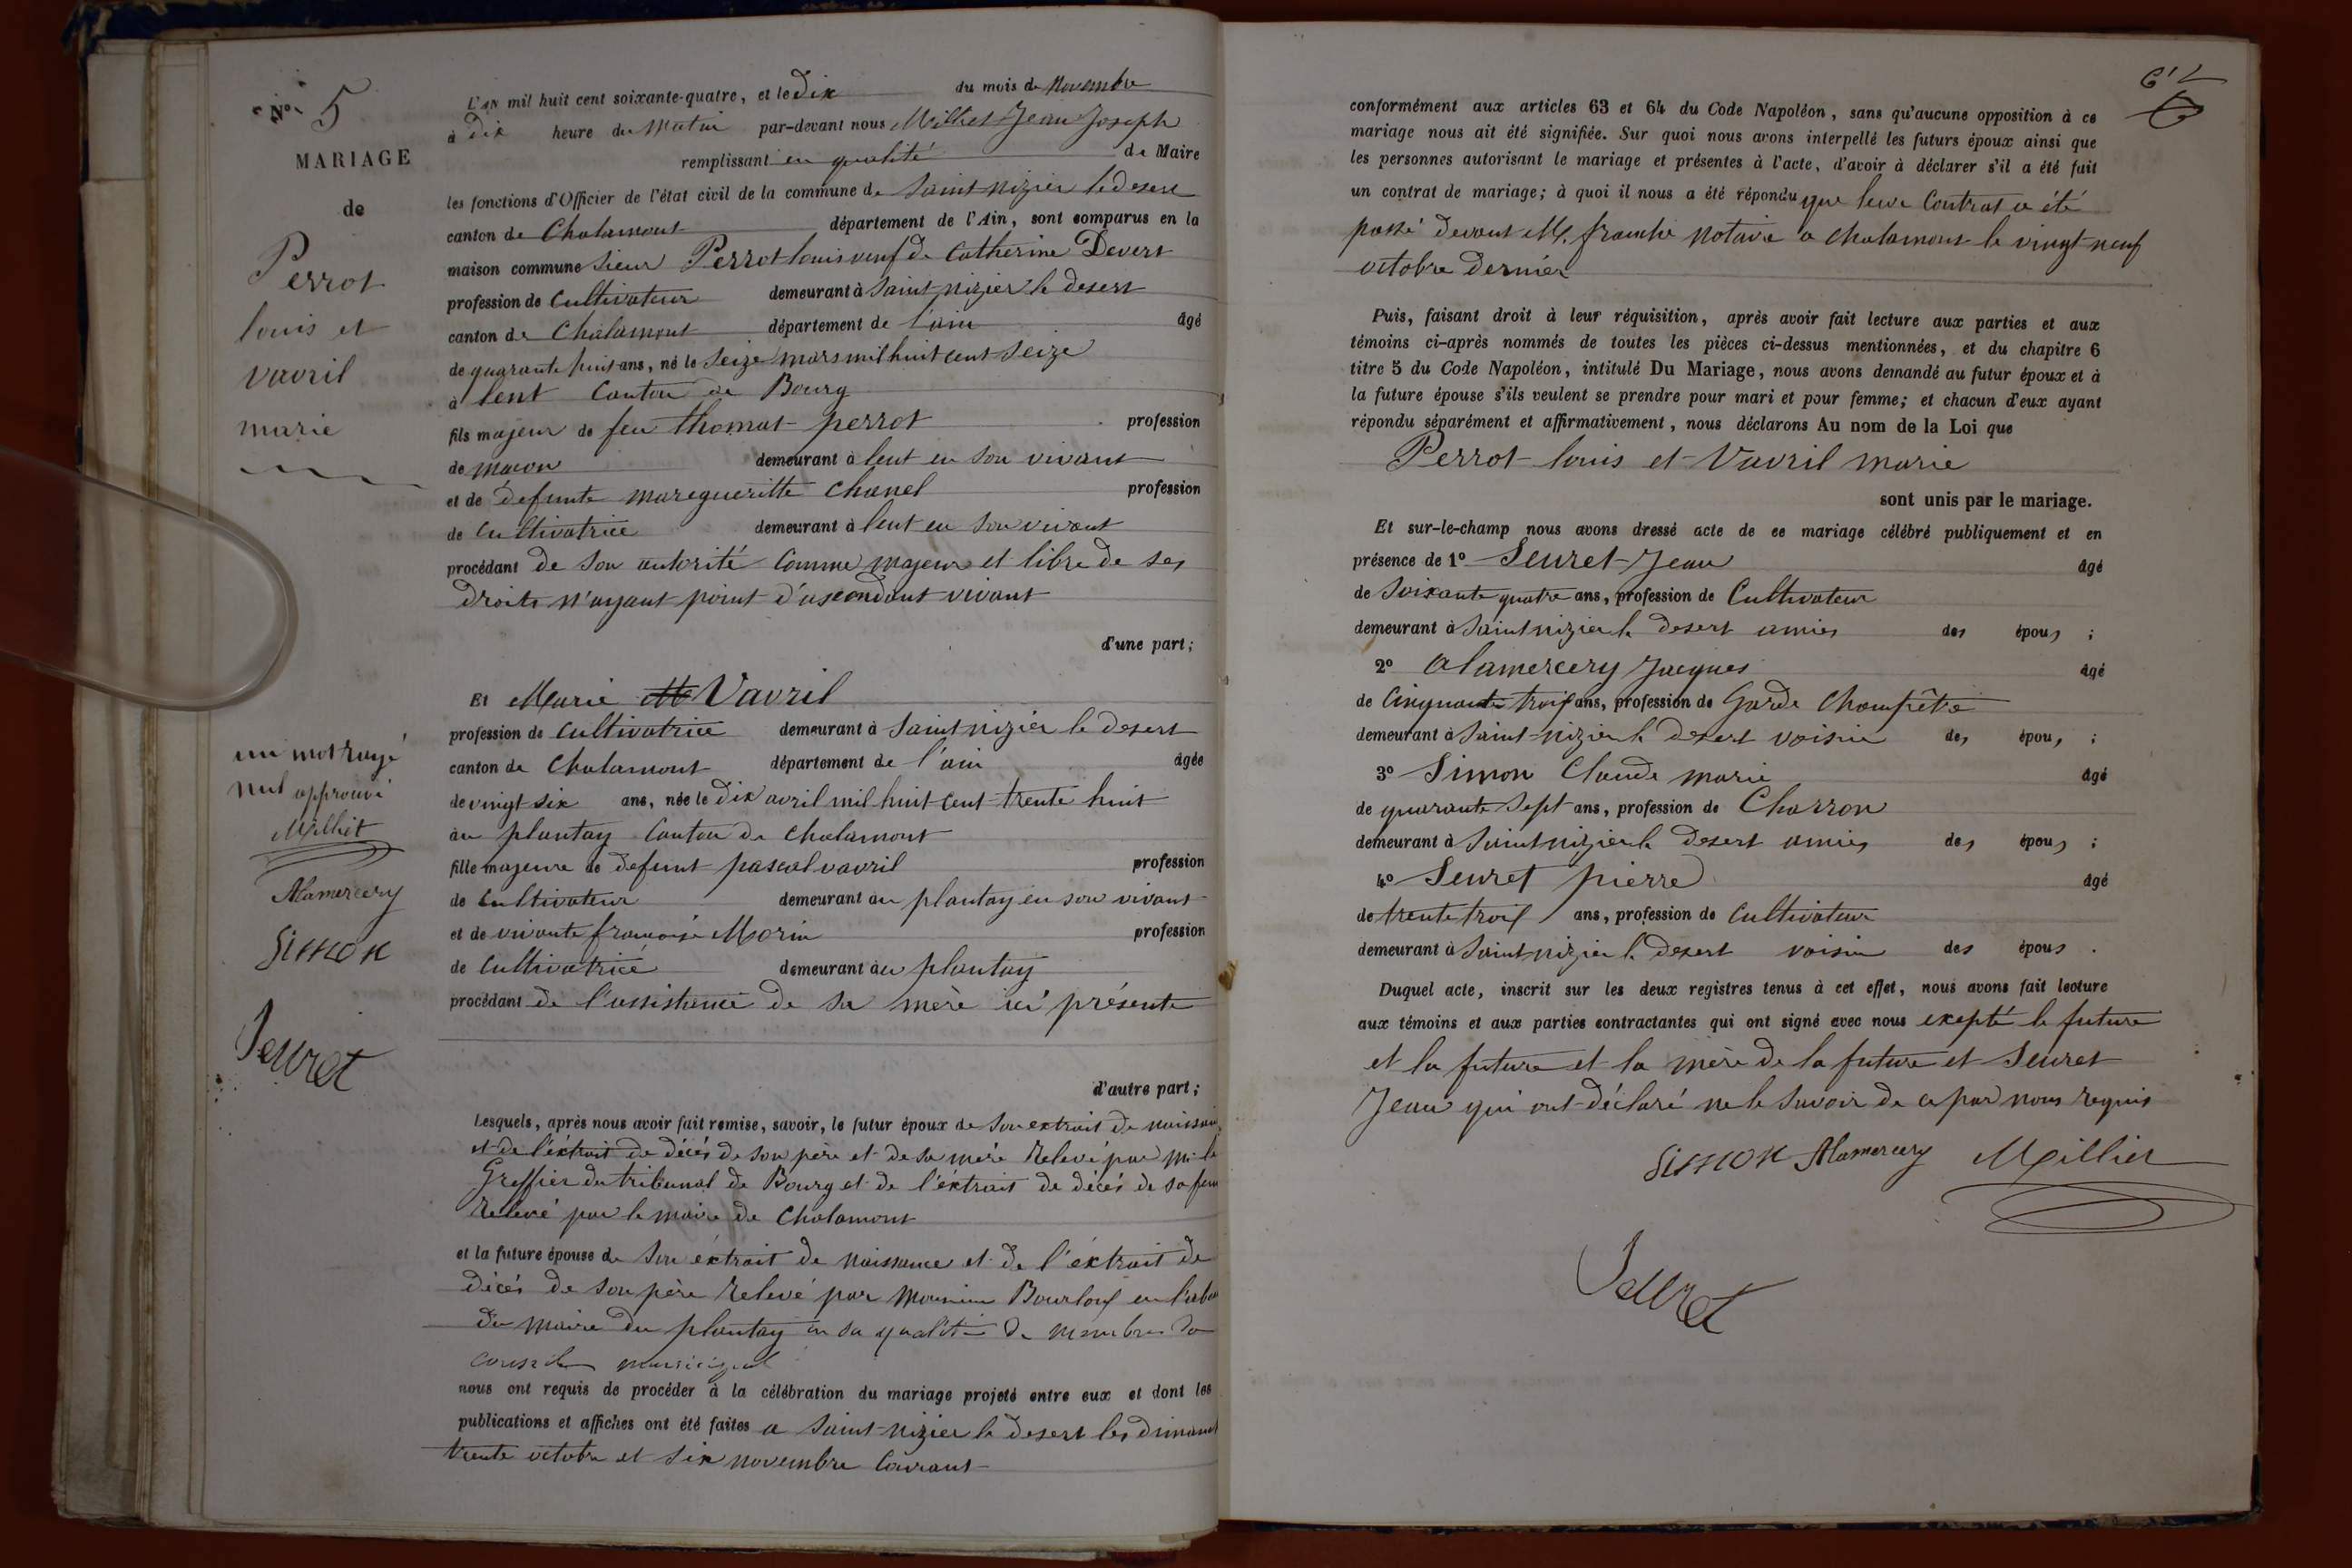 N° 5
MARIAGE
de
Perrot
louis et
vavril
marie
L'AN mil huit cent soixante-quatre, et le Dix du mois de Novembre
à Dix heure du Matin par-devant nous Milliet Jean Joseph
remplissant en qualité de Maire
les fonctions d'Officier de l'état civil de la commune de Saint nizier le desert
canton de Chalamont département de l'Ain, sont comparus en la
maison commune Sieur Perrot louis veuf de Catherine Devert
profession de Cultivateur demeurant à Saint nizier le desert
canton de Chalamont département de l'ain âgé
de quarante huit ans, né le Seize mars mil huit cent Seize
à lent Canton de Bourg
fils majeur de feu thomas perrot profession
de macon demeurant à lent en son vivant
et de défunte maregueritte Chanel profession
de Cultivatrice demeurant à lent en son vivant
procédant de son autorité Comme majeur et libre de ses
Droits n'ayant point d'asendant vivant
d'une part;
Et Marie Vavril
profession de Cultivatrice demeurant à Saint nizier le desert
canton de Chalamont département de l'ain âgée
de vingt six ans, née le Dix avril mil huit cent trente huit
au plantay Canton de Chalamont
fille majeure de defunt pascal vavril profession
de Cultivateur demeurant au plantay en son vivant
et de vivante françoise Morin profession
de Cultivatrice demeurant au plantay
procédant de l'assistance de sa mère ici présente
d'autre part;
un mot rayé
nul approuvé
Milliet
Alamercery
Simon
Seuret
Lesquels, après nous avoir fait remise, savoir, le futur époux de Son extrait de naissan
et de l'éxtrait de décès de son père et de sa mère Relevé par mr le
Greffier du tribunal de Bourg et de l'éxtrait de décès de sa fem
Relevé par le maire de Chalamont
et la future épouse de Son éxtrait de naissance et de l'éxtrait de
décès de son père Relevé par Bourlouf en l'abse
du maire du plantay en sa qualité de membre du
conseil municipal
nous ont requis de procéder à la célébration du mariage projeté entre eux et dont les
publications et affiches ont été faites a Saint nizier le desert les dimanch
trente octobre et Six novembre Courant
conformément aux articles 63 et 64 du Code Napoléon, sans qu'aucune opposition à ce
mariage nous ait été signifiée. Sur quoi nous avons interpellé les futurs époux ainsi que
les personnes autorisant le mariage et présentes à l'acte, d'avoir à déclarer s'il a été fait
un contrat de mariage; à quoi il nous a été répondu que leur Contrat a été
passé devant M. franche Notaire a chalamont le vingt neuf
octobre dernier
Puis, faisant droit à leur réquisition, après avoir fait lecture aux parties et aux
témoins ci-après nommés de toutes les pièces ci-dessus mentionnées, et du chapitre 6
titre 5 du Code Napoléon, intitulé Du Mariage, nous avons demandé au futur époux et à
la future épouse s'ils veulent se prendre pour mari et pour femme; et chacun d'eux ayant
répondu séparément et affirmativement, nous déclarons Au nom de la Loi que
Perrot louis et Vavril marie
sont unis par le mariage.
Et sur-le-champ nous avons dressé acte de ce mariage célébré publiquement et en
présence de 1° Seuret Jean âgé
de Soixante quatre ans, profession de Cultivateur
demeurant à Saint nizier le desert amies des épous ;
2° alamercery Jacques âgé
de Cinquante trois ans, profession de Garde Champêtre
demeurant à Saint-nizier le desert voisin des épous ;
3° Simon Claude marie âgé
de quarante Sept ans, profession de Charron
demeurant à Saint nizier le desert amies des épous ;
4° Seuret pierre âgé
de trente trois ans, profession de Cultivateur
demeurant à Saint nizier le desert voisin des épous .
Duquel acte, inscrit sur les deux registres tenus à cet effet, nous avons fait lecture
aux témoins et aux parties contractantes qui ont signé avec nous exepté le future
et la future et la mère de la future et Seuret
Jean qui ont déclaré ne le Savoir de ce par nous requis
Simon Alamercery Milliet
Seuret